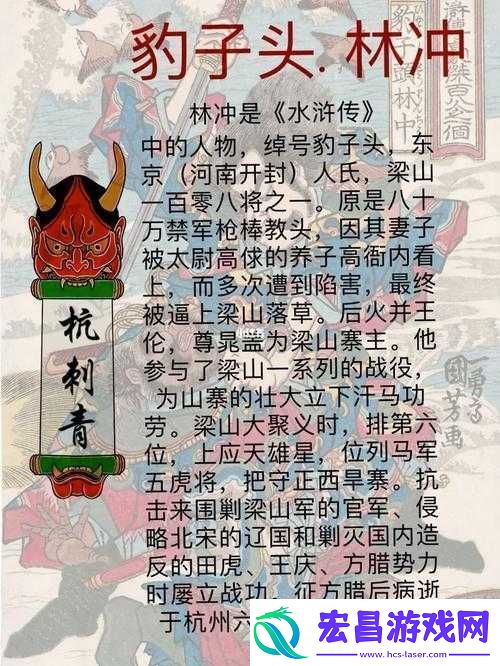 豹子头.林冲
林冲是《水浒传》
中的人物，绰号豹子头，东
京（河南开封）人氏，梁山
一百零八将之一。原是八十
万禁军枪棒教头，因其妻子
被太尉高俅的养子高衙内看
上，而多次遭到陷害，最终
被逼上梁山落草。后火并王
伦，尊晁盖为梁山寨主。他
参与了梁山一系列的战役，
为山寨的壮大立下汗马功
劳。梁山大聚义时，排第六
位，上应天雄星，位列马军
五虎将，把守正西旱寨。抗
击来围剿梁山军的官军、侵
略北宋的辽国和剿灭国内造
反的田虎、王庆、方腊势力
时屡立战功。征方腊后病逝
于杭州六
杭刺青
豹子頭林冲
一勇斎
国芳画
宏昌游戏网
www.hcs-laser.com